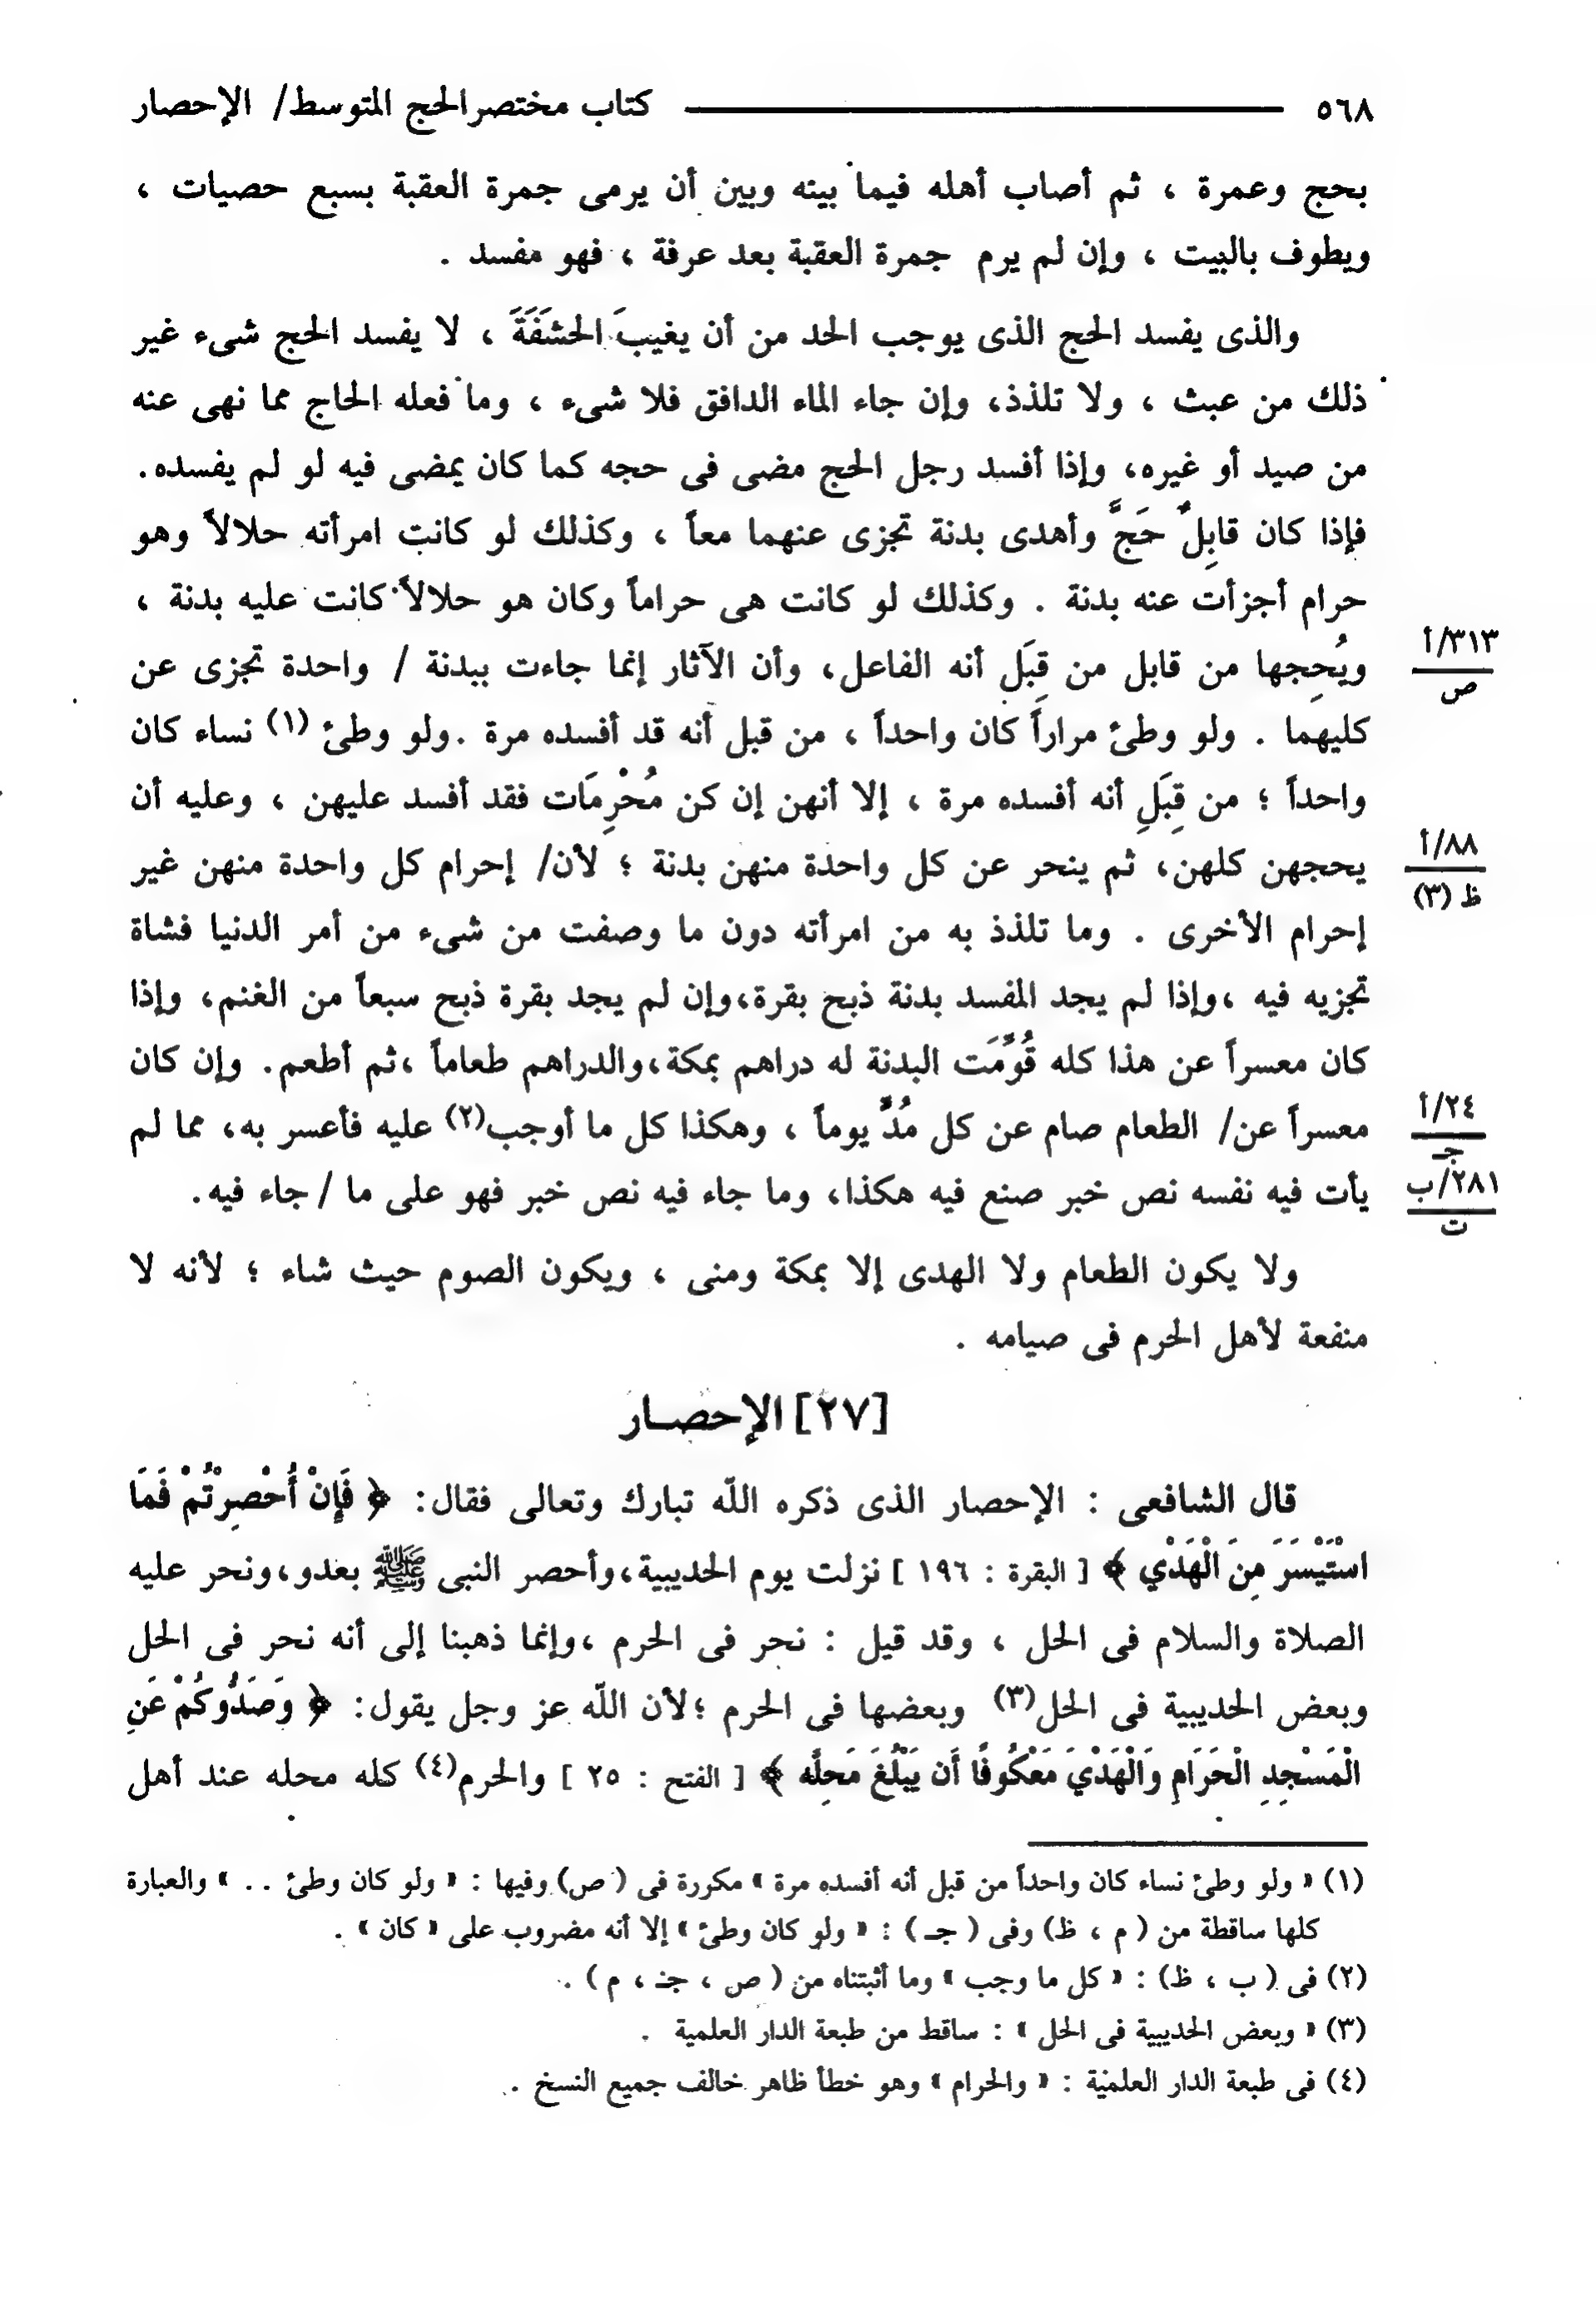 ٥٦٨ كتاب مختصر الحج المتوسط / الإحصار
بحج وعمرة ، ثم أصاب أهله فيما بينه وبين أن يرمى جمرة العقبة بسبع حصيات ،
ويطوف بالبيت ، وإن لم يرم جمرة العقبة بعد عرفة ، فهو مفسد .
والذى يفسد الحج الذى يوجب الحد من أن يغيبَ الحشَفَةَ ، لا يفسد الحج شىء غير
ذلك من عبث ، ولا تلذذ، وإن جاء الماء الدافق فلا شىء ، وما فعله الحاج مما نهى عنه
من صيد أو غيره، وإذا أفسد رجل الحج مضى فى حجه كما كان يمضى فيه لو لم يفسده.
فإذا كان قابِلٌ حَجَّ وأهدى بدنة تجزى عنهما معاً ، وكذلك لو كانت امرأته حلالاً وهو
حرام أجزأت عنه بدنة . وكذلك لو كانت هى حراماً وكان هو حلالاً كانت عليه بدنة ،
ويُحِجها من قابل من قِبَلِ أنه الفاعل، وأن الآثار إنما جاءت ببدنة / واحدة تجزى عن
٣١٣/أ
ص
كليهما . ولو وطئ مراراً كان واحداً ، من قبل أنه قد أفسده مرة .ولو وطئ (١) نساء كان
واحداً ؛ من قِبَلِ أنه أفسده مرة ، إلا أنهن إن كن مُحْرِمَات فقد أفسد عليهن ، وعليه أن
يحجهن كلهن، ثم ينحر عن كل واحدة منهن بدنة ؛ لأن/ إحرام كل واحدة منهن غير
٨٨/أ
ظ (٣)
إحرام الأخرى . وما تلذذ به من امرأته دون ما وصفت من شىء من أمر الدنيا فشاة
تجزيه فيه ،وإذا لم يجد المفسد بدنة ذبح بقرة،وإن لم يجد بقرة ذبح سبعاً من الغنم، وإذا
كان معسراً عن هذا كله قُوِّمَت البدنة له دراهم بمكة،والدراهم طعاماً ،ثم أطعم. وإن كان
معسراً عن/ الطعام صام عن كل مُدٍّ يوماً ، وهكذا كل ما أوجب(٢) عليه فأعسر به، مما لم
٢٤/أ
جـ
يأت فيه نفسه نص خبر صنع فيه هكذا، وما جاء فيه نص خبر فهو على ما / جاء فيه.
٢٨١/ب
ت
ولا يكون الطعام ولا الهدى إلا بمكة ومنى ، ويكون الصوم حيث شاء ؛ لأنه لا
منفعة لأهل الحرم فى صيامه .
[٢٧] الإحصـار
قال الشافعى : الإحصار الذى ذكره اللّه تبارك وتعالى فقال: ﴿ فَإِنْ أُحْصِرْتُمْ فَمَا
اسْتَيْسَرَ مِنَ الْهَدْيِ ﴾ [ البقرة : ١٩٦ ] نزلت يوم الحديبية،وأحصر النبى ﷺ بعدو،ونحر عليه
الصلاة والسلام فى الحل ، وقد قيل : نحر فى الحرم ،وإنما ذهبنا إلى أنه نحر فى الحل
وبعض الحديبية فى الحل(٣) وبعضها فى الحرم ؛لأن اللّه عز وجل يقول: ﴿ وَصَدُّوكُمْ عَنِ
الْمَسْجِدِ الْحَرَامِ وَالْهَدْيَ مَعْكُوفًا أَن يَبْلُغَ مَحِلَّه ﴾ [ الفتح : ٢٥ ] والحرم(٤) كله محله عند أهل
(١) « ولو وطئ نساء كان واحداً من قبل أنه أفسده مرة » مكررة فى ( ص) وفيها : « ولو كان وطئ .. » والعبارة
كلها ساقطة من ( م ، ظ) وفى ( جـ ) : « ولو كان وطئ » إلا أنه مضروب على « كان » .
(٢) فى ( ب ، ظ) : « كل ما وجب » وما أثبتناه من ( ص ، جـ ، م ) .
(٣) « وبعض الحديبية فى الحل » : ساقط من طبعة الدار العلمية .
(٤) فى طبعة الدار العلمية : « والحرام » وهو خطأ ظاهر خالف جميع النسخ .